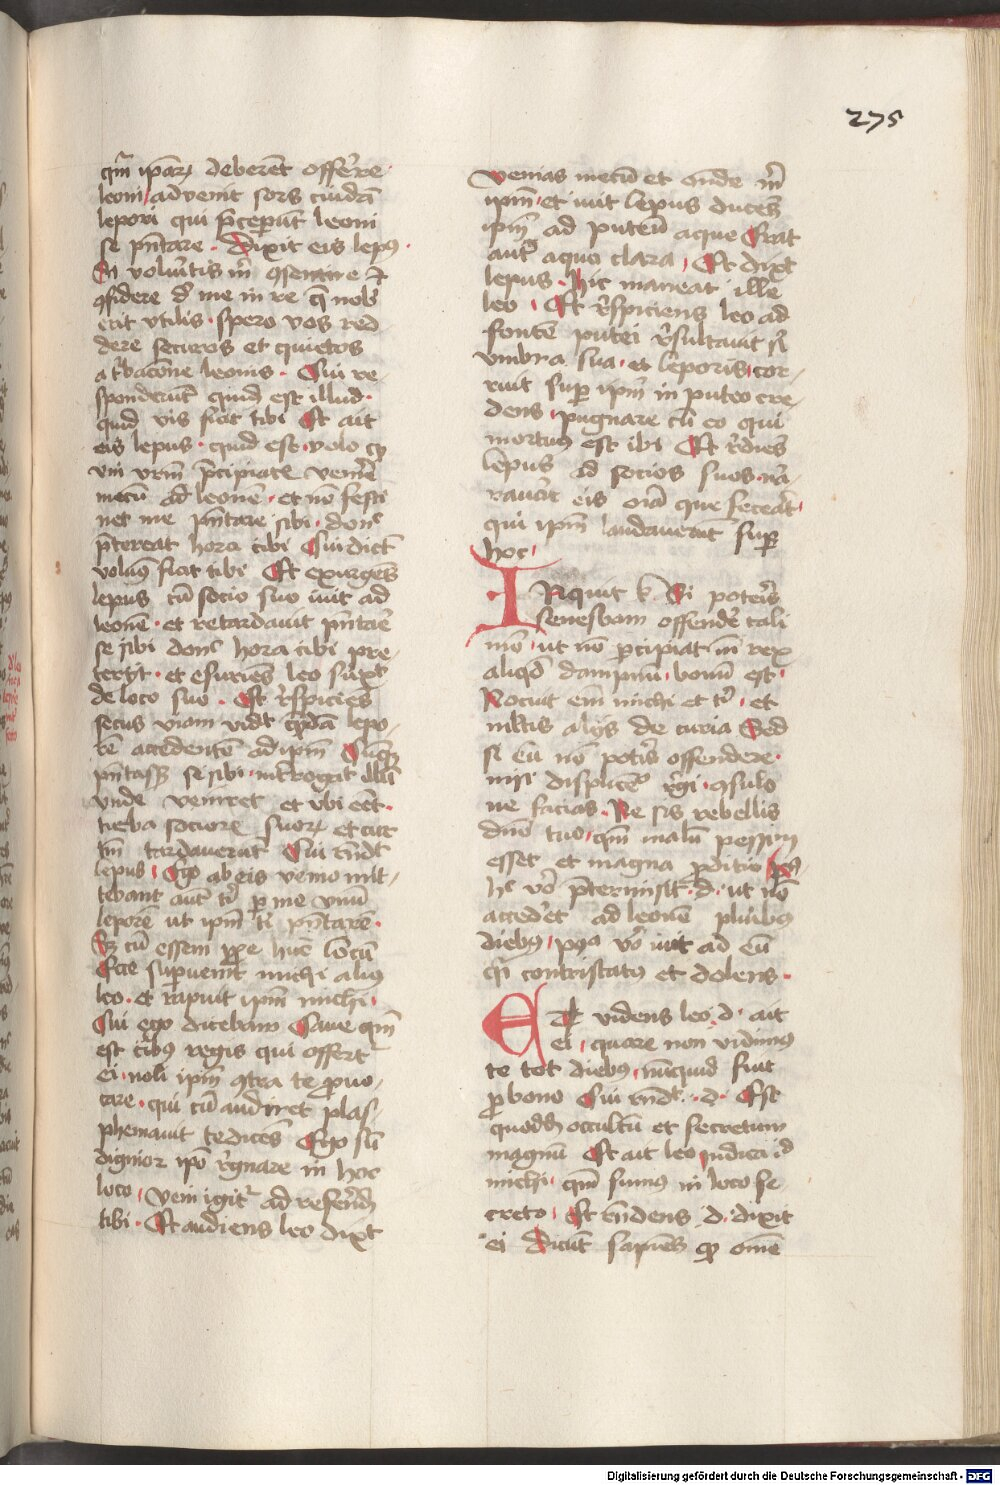 275
qm̄ ipaꝝ deberēt offerre
leoni advenit sors cuidā
lepori qui p̄ceperūt leoni
se p̄ntare. Dixit eis lepꝰ.
Si volūtis m̄ ꝯsentire ⁊
ꝯfidere d̄ me in re q̄ nob̄
erit vtilis. spero vos red-
dere securos et quietos
a t̄bacōne leonis. Cui re-
sponderūt quid est illud.
quid vis fiat tibi Et ait
eis lepus. quid est. volo ꝙ
vni vrm̄ p̄cipiatꝭ venire
mecū ad leonē. et nō festi
net me p̄ntare sibi. donc̄
p̄tereat hora cibi Cui dicūt
volumꝰ fiat tibi Et exurgēs
lepus cū socio suo iuit ad
leonē. et retardavit p̄ntare
se sibi donc̄ hora cibi pre-
teriit. et esuriēs leo surxt
de loco suo. Et r̄spiciēs
secus viam vidt quēdā lepo-
rē accedentē ad ipm̄ Cūqꝫ
p̄ntasꝫ se sibi. int̄rogit illū
vnde veniret et vbi eēt.
turba socioꝝ suoꝝ et cur
tm̄ tardauerūt Cui r̄ndt
lepus. Ego ab eis venio mit-
tebant aut̄ tꝰ p me vnū
leporē ut ipm̄ ti p̄ntarē.
Sꝫ cū essem ꝓpe hūc locū
Ecce supuenit michi alius
leo. et rapuit ipm̄ michi.
Cui ego dicebam Caue qm̄
est cibꝰ regis qui offert
ei. noli ipm̄ ꝯtra te ꝓuo-
care. qui cū audiret plas-
phemauit te dicēs Ego sū
dignior ipo r̄gnare in hoc
loco. veni igitꝰ ad referēdū
tibi. Et audiens leo dixt
venias mecū et ōnde m̄
ipm̄. et iuit lepus ducēs
ipm̄ ad puteū aque Erat
aut̄ aqua clara. Et dixt
lepus. hic maneat ille
leo. Et r̄spiciens leo ad
fontē putei r̄sultauit si
vmbra sua. et leporis. cor-
ruit sup ipm̄ in puteo cre-
dens. pugnare cū eo qui
mortuꝰ est ibi Et r̄diēs
lepus ad socios suos. nā-
rauit eis oīa que fecerat.
qui ipm̄ laudauerūt sup
hoc.
INquit k. Si poteris
senesbam offendē tali
mō. ut nō pcipiat in rex
aliqd̄ dampnū. bonū est.
Nocuit em̄ michi et t̄. et
mltis alijs de curia Sed
si eū nō potis offendere.
nisi displicꝫ r̄gi. ꝯsulo
ne facias. Ne sis rebellis
dn̄o tuo. qm̄ malū pessim
esset et magna ꝓditio
hͨ vō p̄termisit .d. ut nō
accedet ad leonē pluribꝰ
diebꝰ. pꝰqͣ vō iuit ad eū
qͣ contristatus et dolens.
ET videns leo .d. ait
ei. quare non vidimus
te tot diebus. nūquid fuit
ꝓ bono Cui r̄ndt. .d. Est
quoddā occultū et secretum
magnū Et ait leo indica id
michi. qm̄ sumꝰ in loco se
creto. Et r̄ndens .d. dixit
ei Dicūt sapiēs ꝙ omē
Digitalisierung gefördert durch die Deutsche Forschungsgemeinschaft - DFG